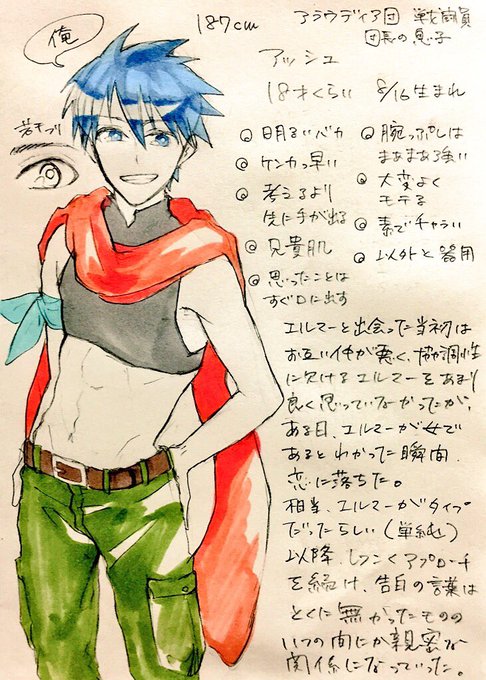 俺
187cm
アラウディア団 戦闘員
団長の息子
アッシュ
18才くらい 8/16生まれ
若干つり
◎ 明るいバカ
◎ ケンカっ早い
◎ 考えるより
先に手が出る
◎ 兄貴肌
◎ 思ったことは
すぐ口に出す
◎ 腕っぷしは
まあまあ強い
◎ 大変よく
モテる
◎ 素でチャラい
◎ 以外と器用
エルマーと出会った当初は
お互い仲が悪く、協調性
に欠けるエルマーをあまり
良く思っていなかったが、
ある日、エルマーが女で
あるとわかった瞬間、
恋に落ちた。
相当、エルマーがタイプ
だったらしい(単純)
以降、しつこくアプローチ
を続け、告白の言葉は
とくに無かったものの
いつの間にか親密な
関係になっていった。